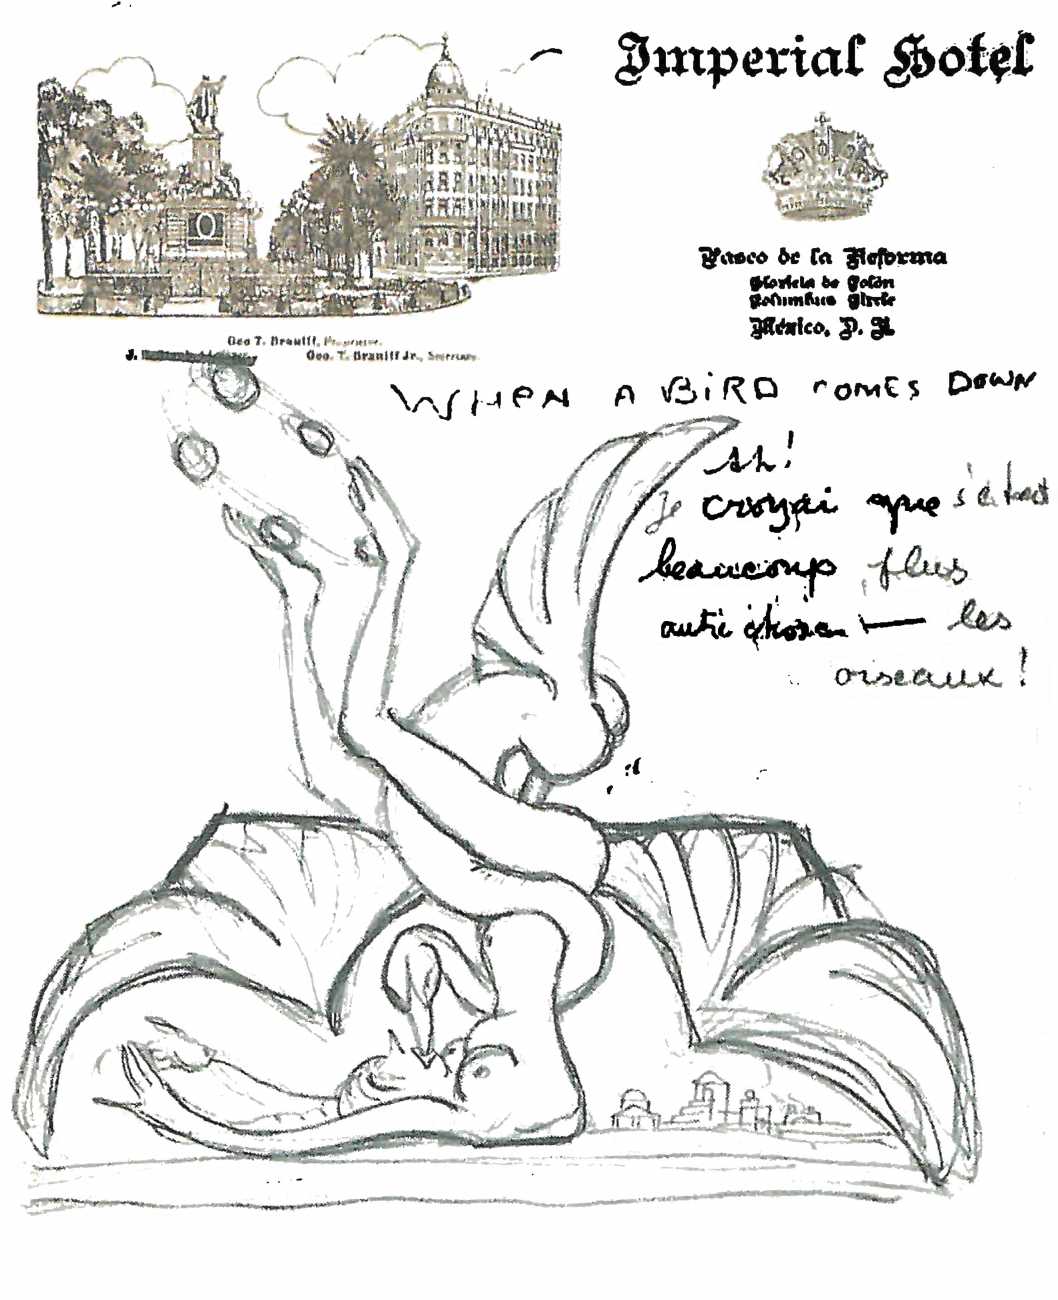 Imperial Hotel
Paseo de la Reforma
Glorieta de Colón
Columbus Circle
México, D. F.
Geo T. Braniff, Proprietor.
J.
Geo. T. Braniff Jr., Secretary.
WHEN A BIRD COMES DOWN
Ah!
Je croyai que s'etait
beaucoup plus
autre chose — les
oiseaux!